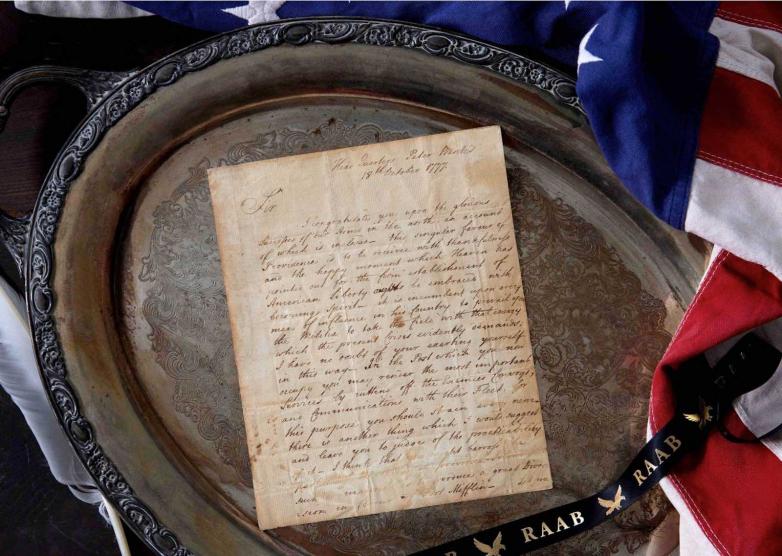 Head Quarters Peter Wentz's
18th October 1777
Sir
I congratulate you upon the glorious
success of our Arms in the north, an account
of which is enclosed. This singular favour of
Providence is to be received with thankfulness
and the happy moment which Heaven has
pointed out for the firm establishment of
American Liberty ought to be embraced with
becoming Spirit. it is incumbent upon every
man of influence in his Country to prevail upon
the Militia to take the Field with that energy
which the present Crisis evidently demands.
I have no doubt of your exerting yourself
in this way. In the Post which you now
occupy you may render the most important
Services by cutting off the Enemies Convoys
and Communications with their Fleet. For
this purpose you should
there is another thing which I would suggest
and leave you to judge of the practicability
I think that
a great
such Mifflin
from
RAAB
RAAB